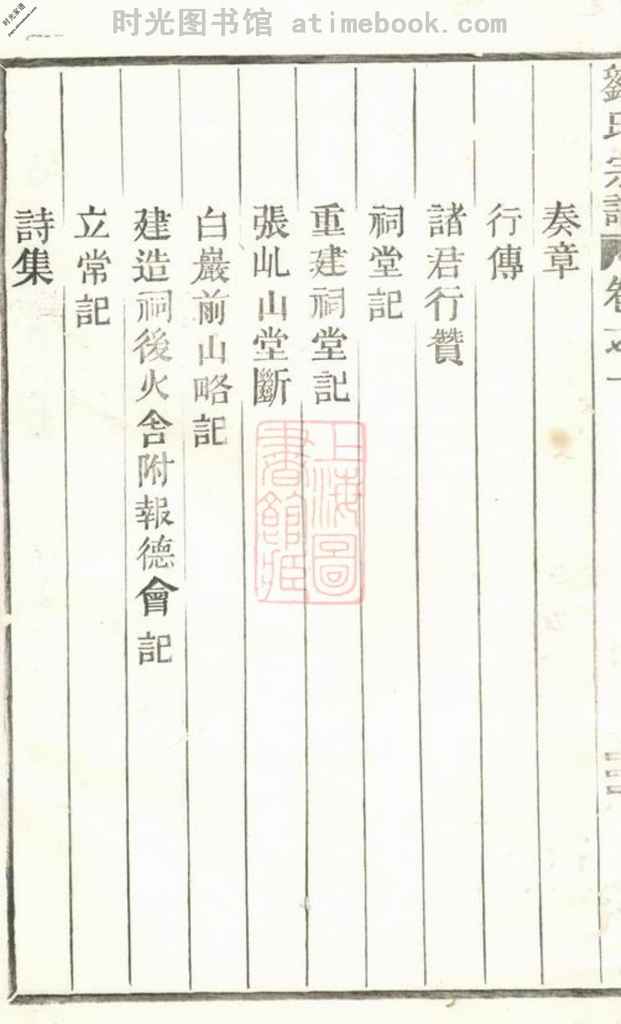 时光图书馆 atimebook.com
劉氏宗譜 卷之一
奏章
行傳
諸君行贊
祠堂記
重建祠堂記
張乢山堂斷
白巖前山略記
建造祠後火舍附報德會記
立常記
詩集
上海圖
書館藏